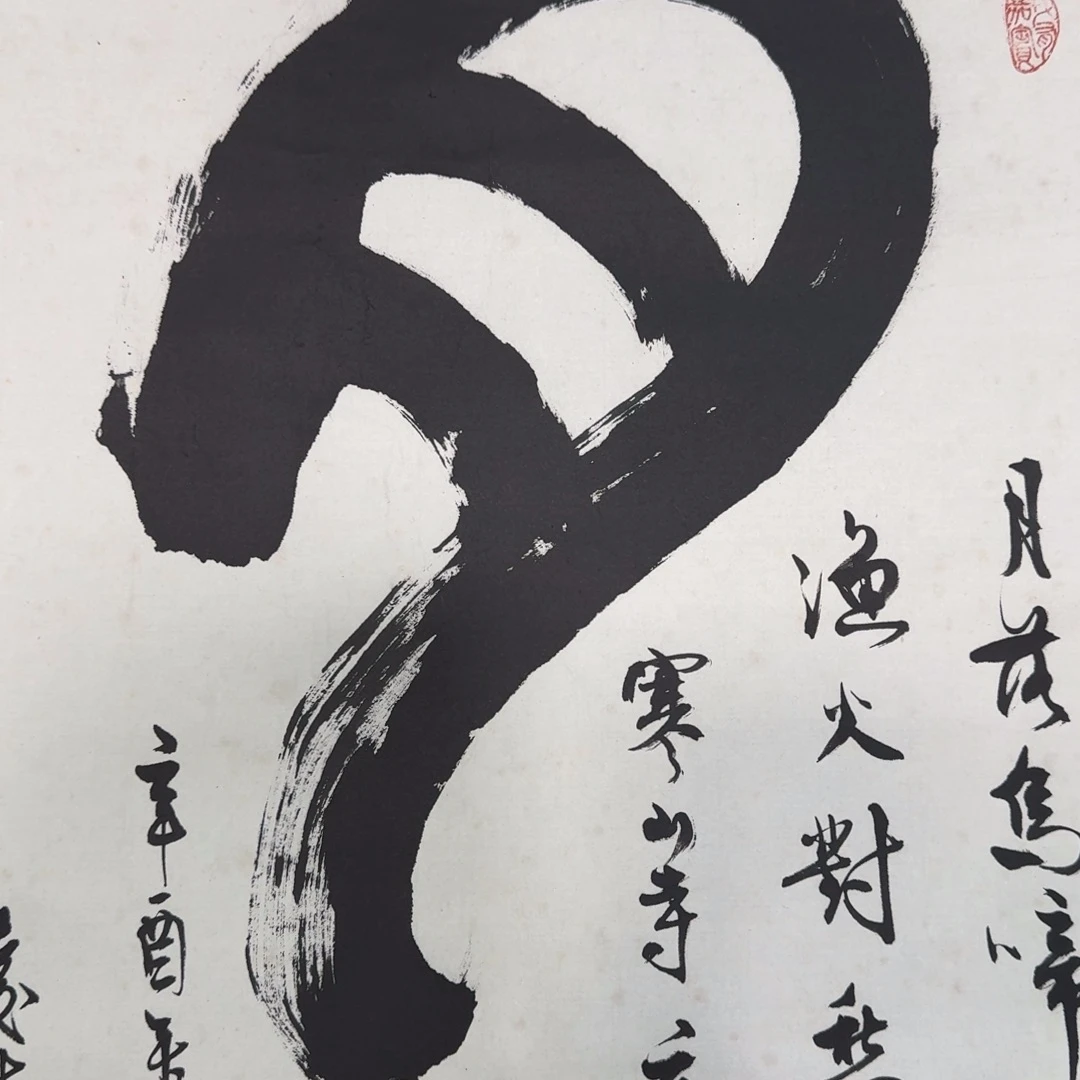 月
月落烏啼
漁火對愁
寒山寺
辛酉年